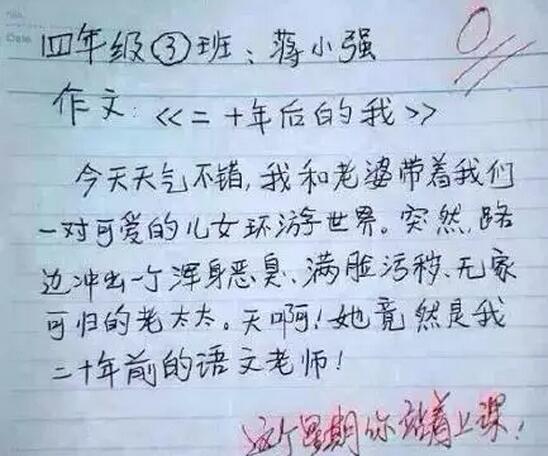 四年级③班：蒋小强
作文：《二十年后的我》
今天天气不错，我和老婆带着我们
一对可爱的儿女环游世界。突然，路
边冲出一个浑身恶臭、满脸污秽、无家
可归的老太太。天啊！她竟然是我
二十年前的语文老师！
这个星期你站着上课！